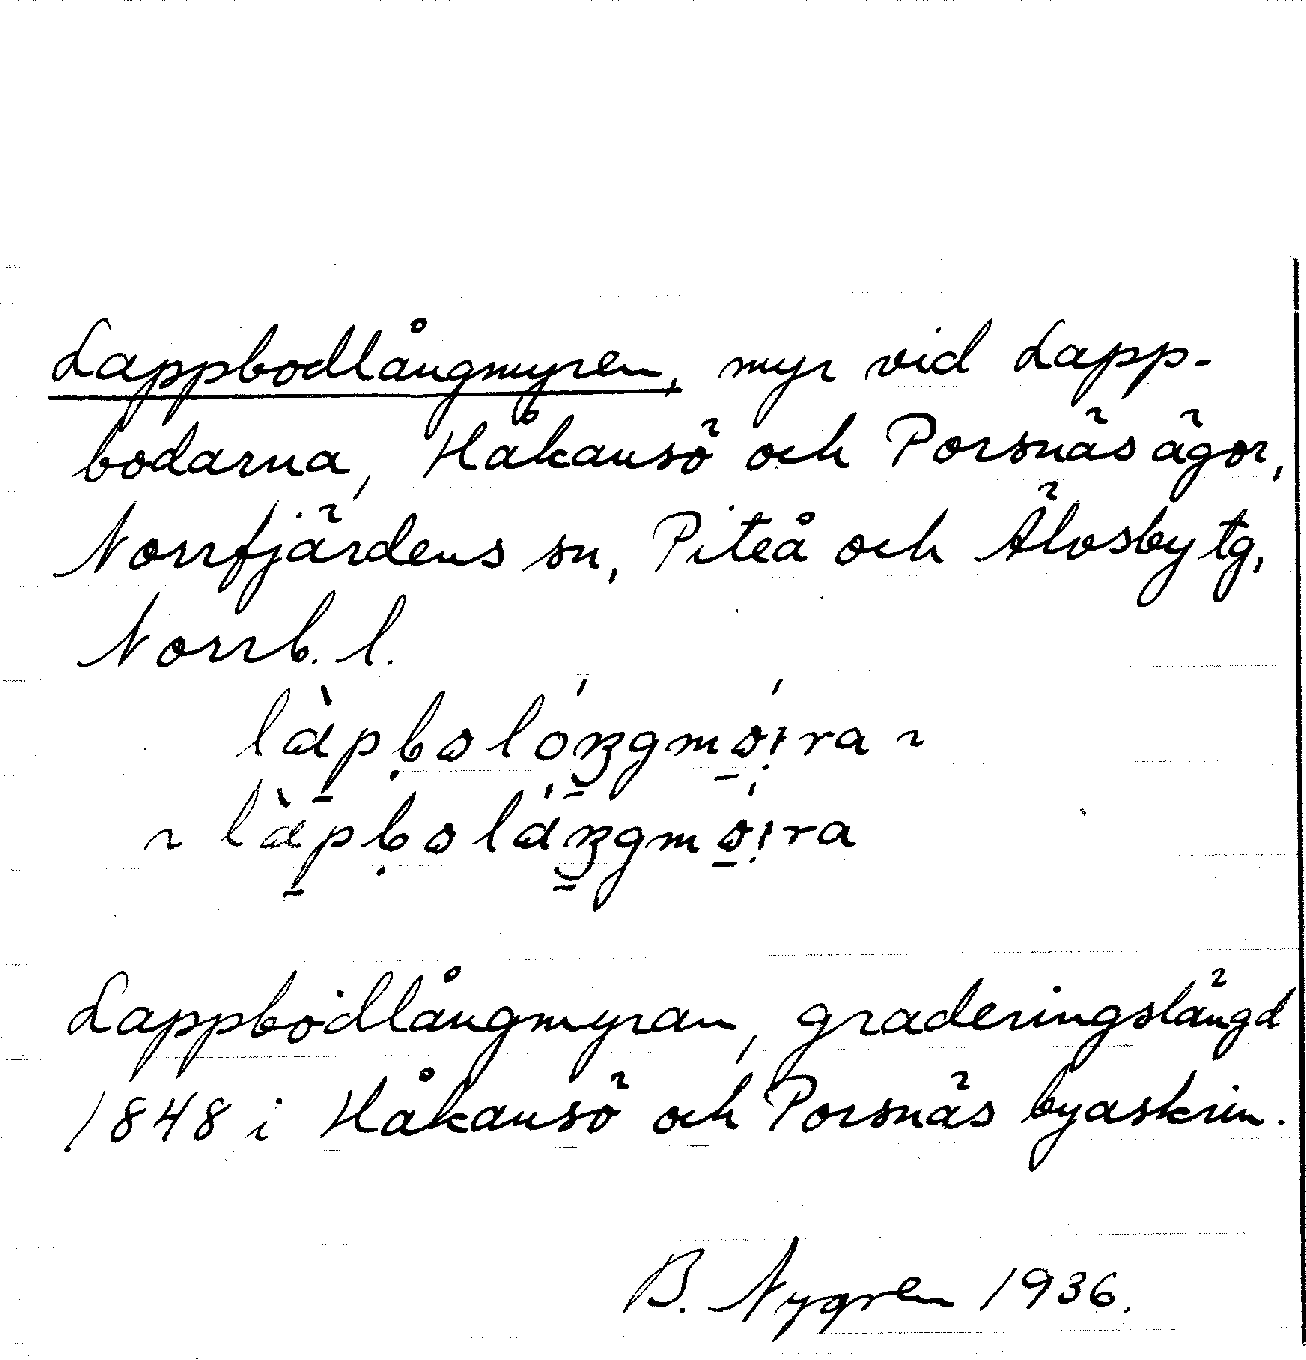 Lappbodlångmyren, myr vid Lapp-
bodarna, Håkansö och Porsnäs ägor,
Norrfjärdens sn, Piteå och Älvsby tg,
Norrb. l.
làpbolóŋgmó̤ira ~
~ làpboláŋgmó̤ira
Lappbodlångmyran, graderingslängd
1848 i Håkansö och Porsnäs byaskrin.
B. Nygren 1936.